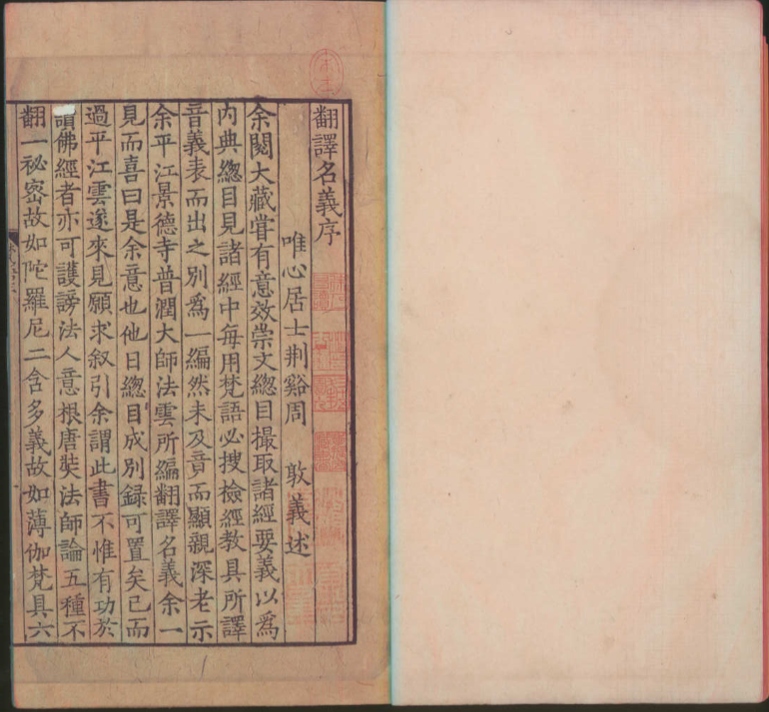 翻譯名義序
唯心居士荆谿周 敦義述
余閱大藏甞有意效崇文緫目撮取諸經要義以爲
内典緫目見諸經中每用梵語必搜檢經教具所譯
音義表而出之别爲一編然未及竟而顯親深老示
余平江景德寺普潤大師法雲所編翻譯名義余一
見而喜曰是余意也他日緫目成别録可置矣已而
過平江雲遂來見願求叙引余謂此書不惟有功於
讀佛經者亦可護謗法人意根唐奘法師論五種不
翻一祕密故如陀羅尼二含多義故如薄伽梵具六